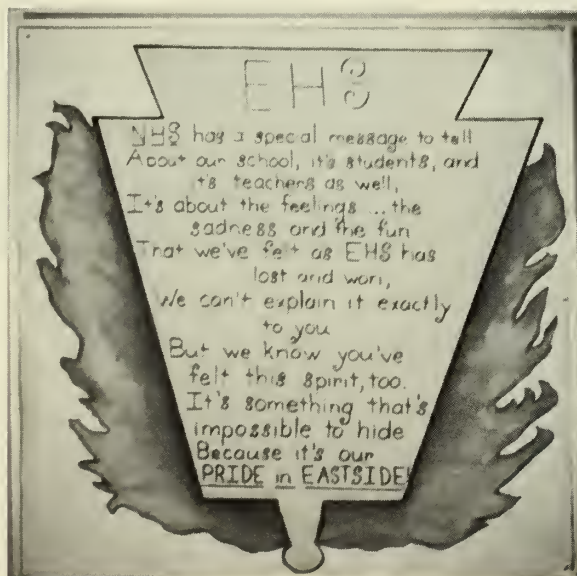 EHS
NHS has a special message to tell
About our school, it's students, and
it's teachers as well,
It's about the feelings ... the
sadness and the fun
That we've felt as EHS has
lost and won,
We can't explain it exactly
to you
But we know you've
felt this spirit, too.
It's something that's
impossible to hide
Because it's our
PRIDE in EASTSIDE!